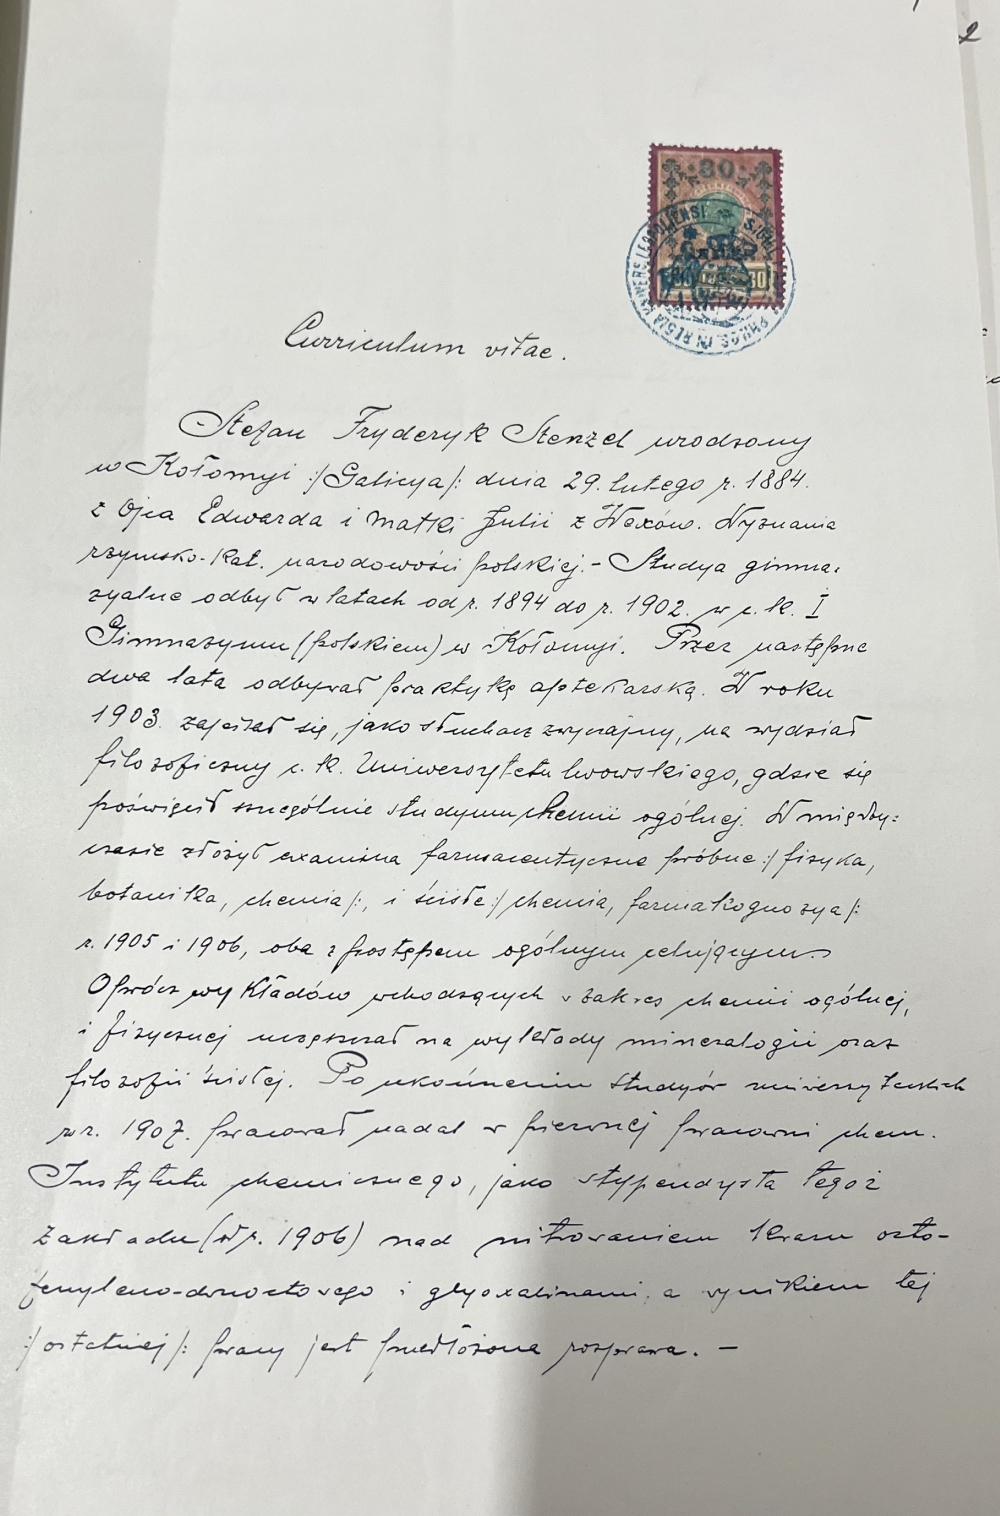 2
30
UNIVERS. LEOPOLIENSI
PHILOS. IN REGIA
30 30
Curriculum vitae.
Stefan Fryderyk Stenzel urodzony
w Kołomyi :/Galicya/: dnia 29. lutego r. 1884.
z Ojca Edwarda i Matki Julii z Wexów. Wyznania
rzymsko-kat. narodowości polskiej. – Studya gimna-
zyalne odbył w latach od r. 1894 do r. 1902. w c. k. I
Gimnazyum (polskiem) w Kołomyi. Przez następne
dwa lata odbywał praktykę aptekarską. W roku
1903. zapisał się, jako słuchacz zwyczajny, na wydział
filozoficzny c. k. Uniwersytetu lwowskiego, gdzie się
poświęcił szczególnie studyum chemii ogólnej. W między=
czasie złożył examina farmaceutyczne próbne :/ fizyka,
botanika, chemia/:, i ścisłe :/ chemia, farmakognozya/:
r. 1905 i 1906, oba z postępem ogólnym celującym.
Oprócz wykładów wchodzących w zakres chemii ogólnej,
i fizycznej uczęszczał na wykłady mineralogii oraz
filozofii ścisłej. Po ukończeniu studyów uniwersyteckich
w r. 1907. pracował nadal w pierwszej pracowni chem.
Instytutu chemicznego, jako stypendysta tegoż
zakładu (od r. 1906) nad nitrowaniem kwasu orto-
fenyleno-dwuoctowego i glyoxalinami, a wynikiem tej
:/ostatniej/: pracy jest przedłożona rozprawa. –